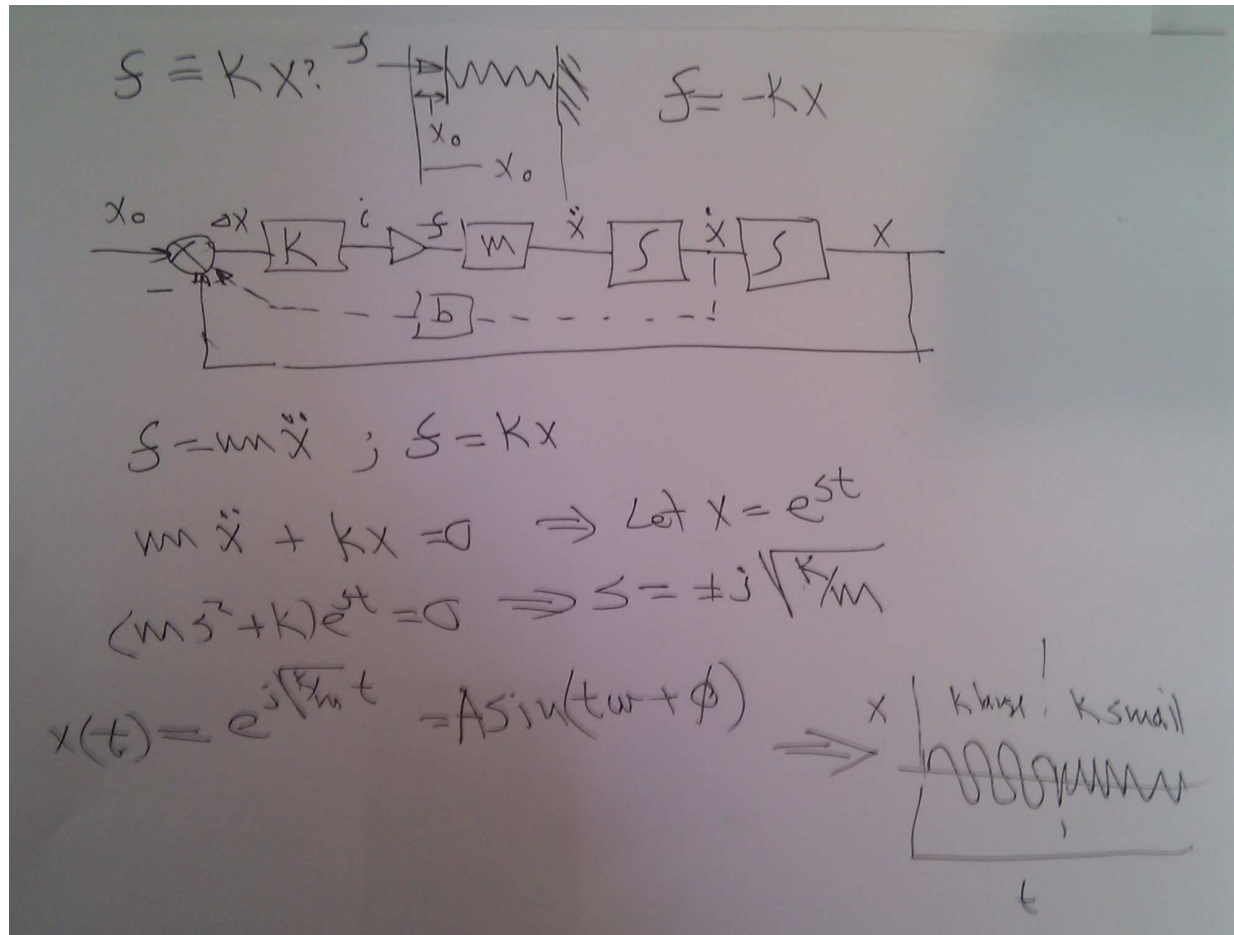 f = Kx? f f = -Kx
x₀
x₀
x₀ Δx K i f m ẍ ∫ ẋ ∫ x
- b
f = mẍ ; f = Kx
mẍ + kx = 0 ⇒ Let x = e^st
(ms² + K)e^st = 0 ⇒ s = ±j√K/m
x(t) = e^j√K/m t = A sin(tω + φ) ⇒ x K large K small
t